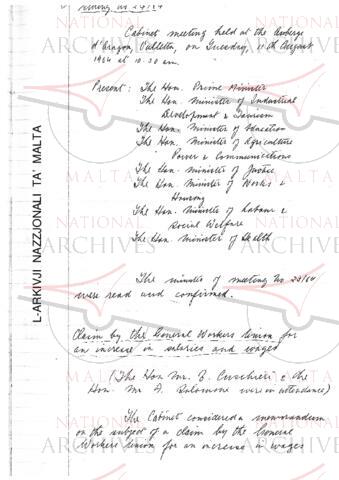 Meeting No 24/64
Cabinet meeting held at the Auberge
d'Aragon, Valletta, on Tuesday, 11th August
1964 at 10.30 am.
Present: The Hon. Prime Minister
The Hon. Minister of Industrial
Development & Tourism
The Hon. Minister of Education
The Hon. Minister of Agriculture
Power & Communications
The Hon. Minister of Justice
The Hon. Minister of Works &
Housing
The Hon. Minister of Labour &
Social Welfare
The Hon. Minister of Health
The minutes of meeting No 23/64
were read and confirmed.
Claim by the General Workers Union for
an increase in salaries and wages
(The Hon Mr. & the
Hon. Mr A. Salomone were in attendance)
The Cabinet considered a memorandum
on the subject of a claim by the General
Workers Union for an increase in wages
L-ARKIVJI NAZZJONALI TA' MALTA
NATIONAL ARCHIVES MALTA